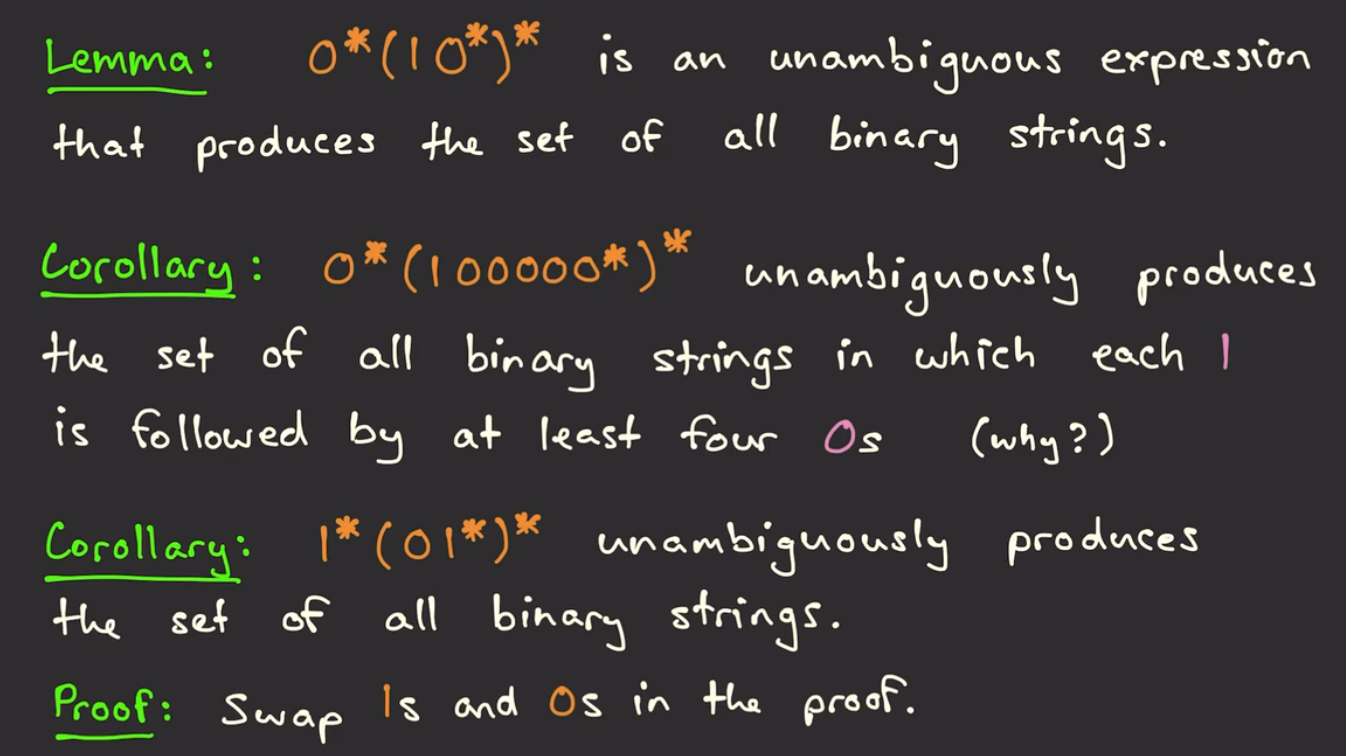 Lemma: 0*(10*)* is an unambiguous expression
that produces the set of all binary strings.
Corollary: 0*(100000*)* unambiguously produces
the set of all binary strings in which each 1
is followed by at least four 0s (why?)
Corollary: 1*(01*)* unambiguously produces
the set of all binary strings.
Proof: Swap 1s and 0s in the proof.